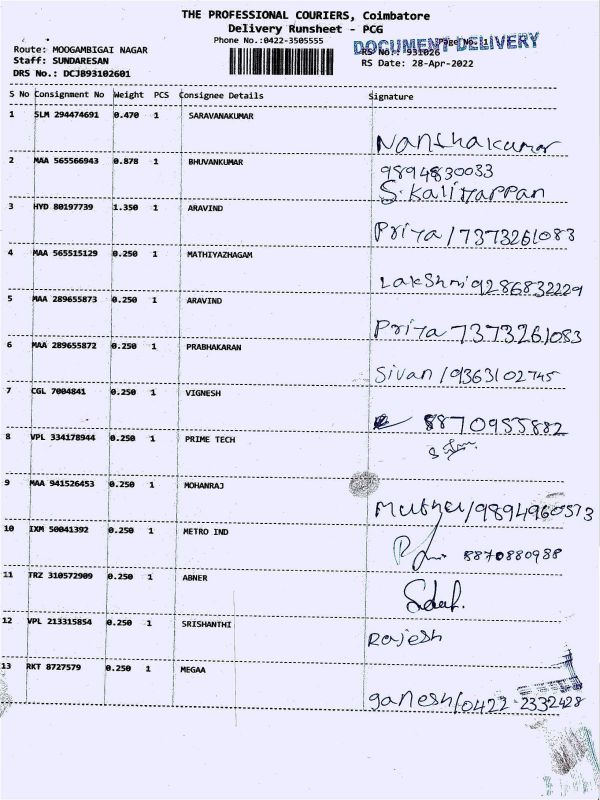 THE PROFESSIONAL COURIERS, Coimbatore
Delivery Runsheet - PCG
Phone No.:0422-3505555 Page No. 1
DOCUMENT DELIVERY
Route: MOOGAMBIGAI NAGAR RS No.: 931026
Staff: SUNDARESAN RS Date: 28-Apr-2022
DRS No.: DCJB93102601
S No Consignment No Weight PCS Consignee Details Signature
1 SLM 294474691 0.470 1 SARAVANAKUMAR
Nanthakumar
2 MAA 565566943 0.878 1 BHUVANKUMAR
9894830033
S. Kaliyappan
3 HYD 80197739 1.350 1 ARAVIND
Priya/7373261083
4 MAA 565515129 0.250 1 MATHIYAZHAGAM
Lakshmi 9286832229
5 MAA 289655873 0.250 1 ARAVIND
Priya 7373261083
6 MAA 289655872 0.250 1 PRABHAKARAN
Sivan/9363102745
7 CGL 7004841 0.250 1 VIGNESH
8870955882
8 VPL 334178944 0.250 1 PRIME TECH
9 MAA 941526453 0.250 1 MOHANRAJ
Muthu/9894960573
10 IXM 50041392 0.250 1 METRO IND
8870880988
11 TRZ 310572909 0.250 1 ABNER
12 VPL 213315854 0.250 1 SRISHANTHI
Rajesh
13 RKT 8727579 0.250 1 MEGAA
ganesh/0422-2332428